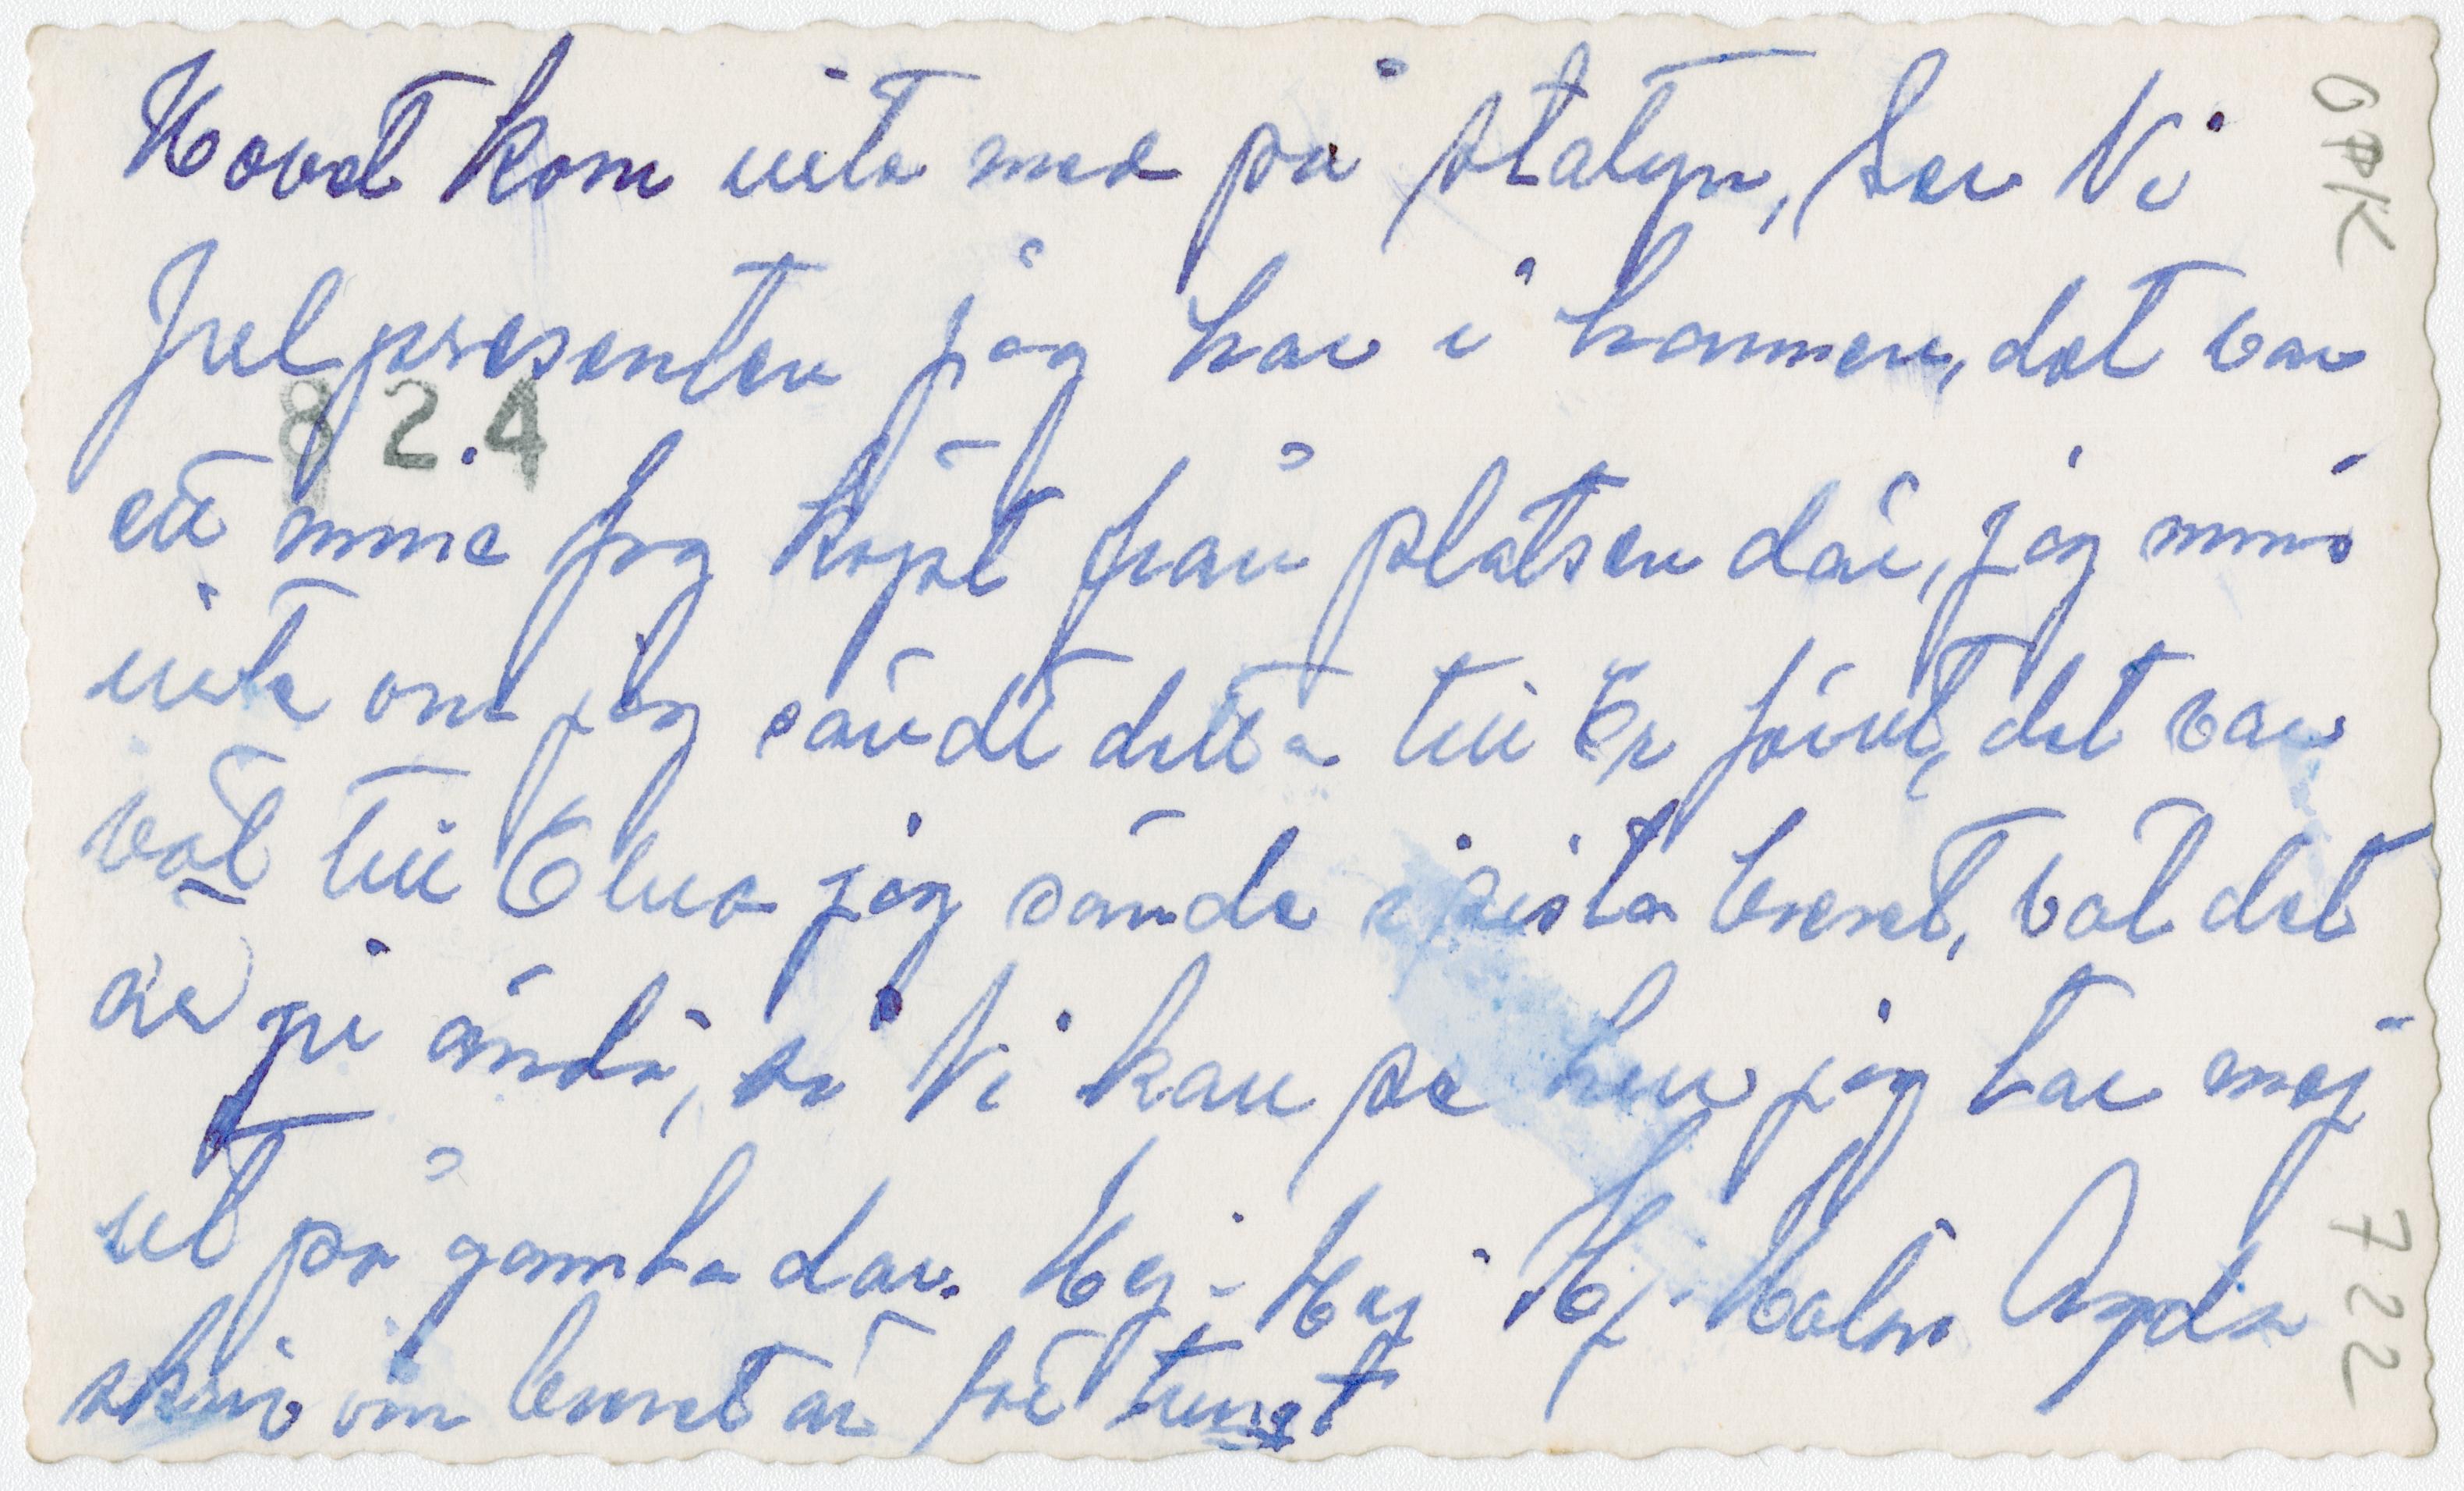 Hovet kom inte med på statyn, Ser Ni
Julpresenten jag har i hannen, det var
ett minne jag köpt från platsen där, jag minns
inte om jag sändt detta till Er förut, det var
väl till Elna jag sände i sista brevet, väl det
är ju ändå, så Ni kan se hur jag tar mej
ut på gamla dar. Hej - Hej Hj. Hälsn Agda
skriv om brevet är för tungt
82.4
OPK
722